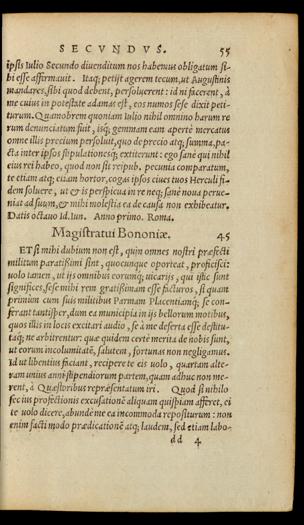 SECVNDVS. 55
ipsis Iulio Secundo diuenditum nos habemus obligatum si-
bi esse affirmauit. Itaq; petijt agerem tecum, ut Augustinis
mandares, sibi quod debent, persoluerent: id ni facerent, à
me cuius in potestate adamas est, eos numos sese dixit peti-
turum. Quamobrem quoniam Iulio nihil omnino harum re
rum denunciatum fuit, isq; gemmam eam apertè mercatus
omne illis precium persoluit, quo de precio atq; summa, pa-
cta inter ipsos stipulationesq; extiterunt: ego sanè qui nihil
eius rei habeo, quod non sit reipub. pecunia comparatum,
te etiam atq; etiam hortor, cogas ipsos ciues tuos Herculi fi-
dem soluere, ut & is perspicua in re neq; sanè noua perue-
niat ad suum, & mihi molestia ea de causa non exhibeatur.
Datis octauo Id. Iun. Anno primo. Roma.
Magistratui Bononiæ. 45
ET si mihi dubium non est, quin omnes nostri præfecti
militum paratißimi sint, quocunque oporteat, proficisci:
uolo tamen, ut ijs omnibus eorumq; uicarijs, qui istic sunt
significes, sese mihi rem gratißimam esse facturos, si quam
primùm cum suis militibus Parmam Placentiamq; se con-
ferant tantisper, dum ea municipia in ijs bellorum motibus,
quos illis in locis excitari audio, se à me deserta esse destitu-
taq; ne arbitrentur: quæ quidem certè merita de nobis sunt,
ut eorum incolumitatē, salutem, fortunas non negligamus.
Id ut libentius faciant, recipere te eis uolo, quartam alte-
ram unius anni stipendiorum partem, quam adhuc non me-
rent, à Quæstoribus repræsentatum iri. Quod si nihilo
secius profectionis excusationē aliquam quispiam afferet, ei
te uolo dicere, abunde me ea incommoda repositurum: non
enim facti modo prædicationē atq; laudem, sed etiam labo-
dd 4